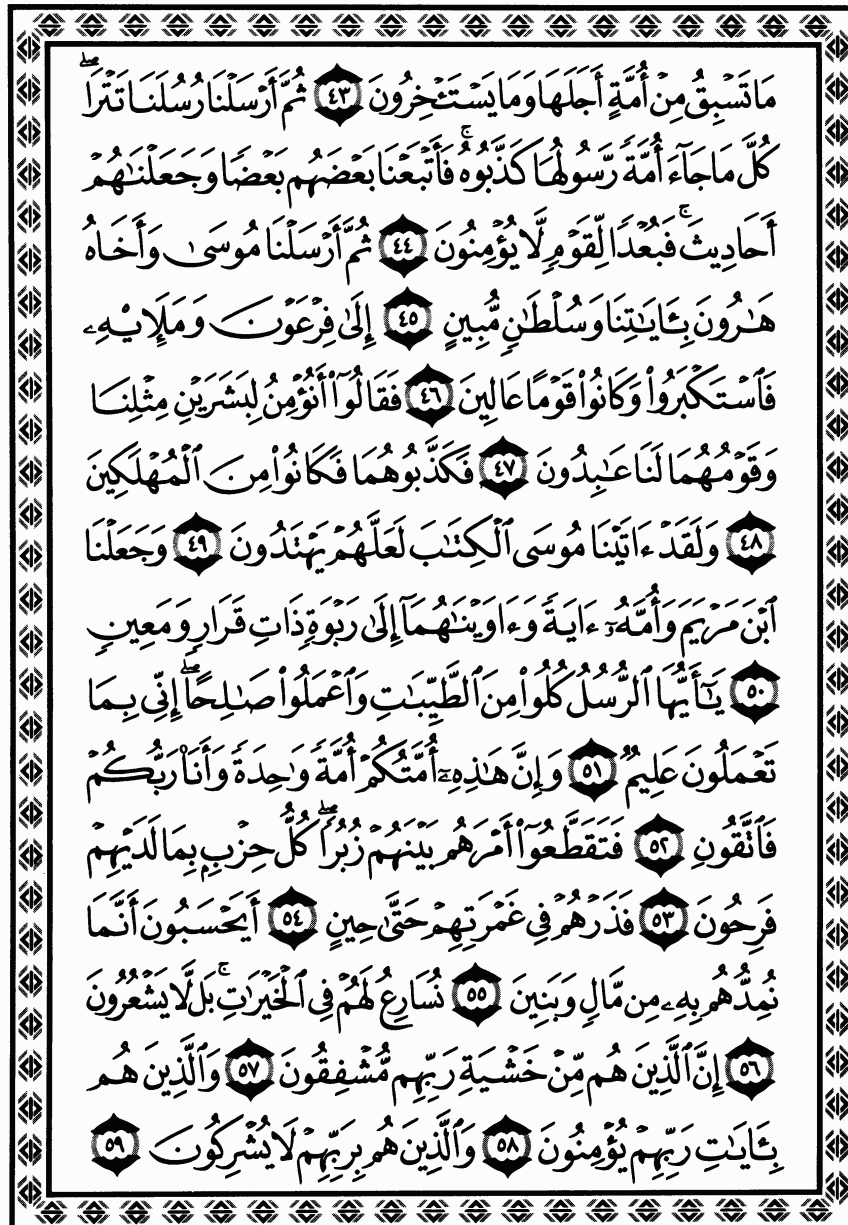 مَا تَسْبِقُ مِنْ أُمَّةٍ أَجَلَهَا وَمَا يَسْتَـْٔخِرُونَ ٤٣ ثُمَّ أَرْسَلْنَا رُسُلَنَا تَتْرَاۖ
كُلَّ مَا جَآءَ أُمَّةً رَّسُولُهَا كَذَّبُوهُۚ فَأَتْبَعْنَا بَعْضَهُم بَعْضًا وَجَعَلْنَٰهُمْ
أَحَادِيثَۚ فَبُعْدًا لِّقَوْمٍ لَّا يُؤْمِنُونَ ٤٤ ثُمَّ أَرْسَلْنَا مُوسَىٰ وَأَخَاهُ
هَٰرُونَ بِـَٔايَٰتِنَا وَسُلْطَٰنٍ مُّبِينٍ ٤٥ إِلَىٰ فِرْعَوْنَ وَمَلَإِي۟هِۦ
فَٱسْتَكْبَرُوا۟ وَكَانُوا۟ قَوْمًا عَالِينَ ٤٦ فَقَالُوٓا۟ أَنُؤْمِنُ لِبَشَرَيْنِ مِثْلِنَا
وَقَوْمُهُمَا لَنَا عَٰبِدُونَ ٤٧ فَكَذَّبُوهُمَا فَكَانُوا۟ مِنَ ٱلْمُهْلَكِينَ
٤٨ وَلَقَدْ ءَاتَيْنَا مُوسَى ٱلْكِتَٰبَ لَعَلَّهُمْ يَهْتَدُونَ ٤٩ وَجَعَلْنَا
ٱبْنَ مَرْيَمَ وَأُمَّهُۥٓ ءَايَةً وَءَاوَيْنَٰهُمَآ إِلَىٰ رَبْوَةٍ ذَاتِ قَرَارٍ وَمَعِينٍ
٥٠ يَٰٓأَيُّهَا ٱلرُّسُلُ كُلُوا۟ مِنَ ٱلطَّيِّبَٰتِ وَٱعْمَلُوا۟ صَٰلِحًاۖ إِنِّى بِمَا
تَعْمَلُونَ عَلِيمٌ ٥١ وَإِنَّ هَٰذِهِۦٓ أُمَّتُكُمْ أُمَّةً وَٰحِدَةً وَأَنَا۠ رَبُّكُمْ
فَٱتَّقُونِ ٥٢ فَتَقَطَّعُوٓا۟ أَمْرَهُم بَيْنَهُمْ زُبُرًاۖ كُلُّ حِزْبٍۭ بِمَا لَدَيْهِمْ
فَرِحُونَ ٥٣ فَذَرْهُمْ فِى غَمْرَتِهِمْ حَتَّىٰ حِينٍ ٥٤ أَيَحْسَبُونَ أَنَّمَا
نُمِدُّهُم بِهِۦ مِن مَّالٍ وَبَنِينَ ٥٥ نُسَارِعُ لَهُمْ فِى ٱلْخَيْرَٰتِۚ بَل لَّا يَشْعُرُونَ
٥٦ إِنَّ ٱلَّذِينَ هُم مِّنْ خَشْيَةِ رَبِّهِم مُّشْفِقُونَ ٥٧ وَٱلَّذِينَ هُم
بِـَٔايَٰتِ رَبِّهِمْ يُؤْمِنُونَ ٥٨ وَٱلَّذِينَ هُم بِرَبِّهِمْ لَا يُشْرِكُونَ ٥٩